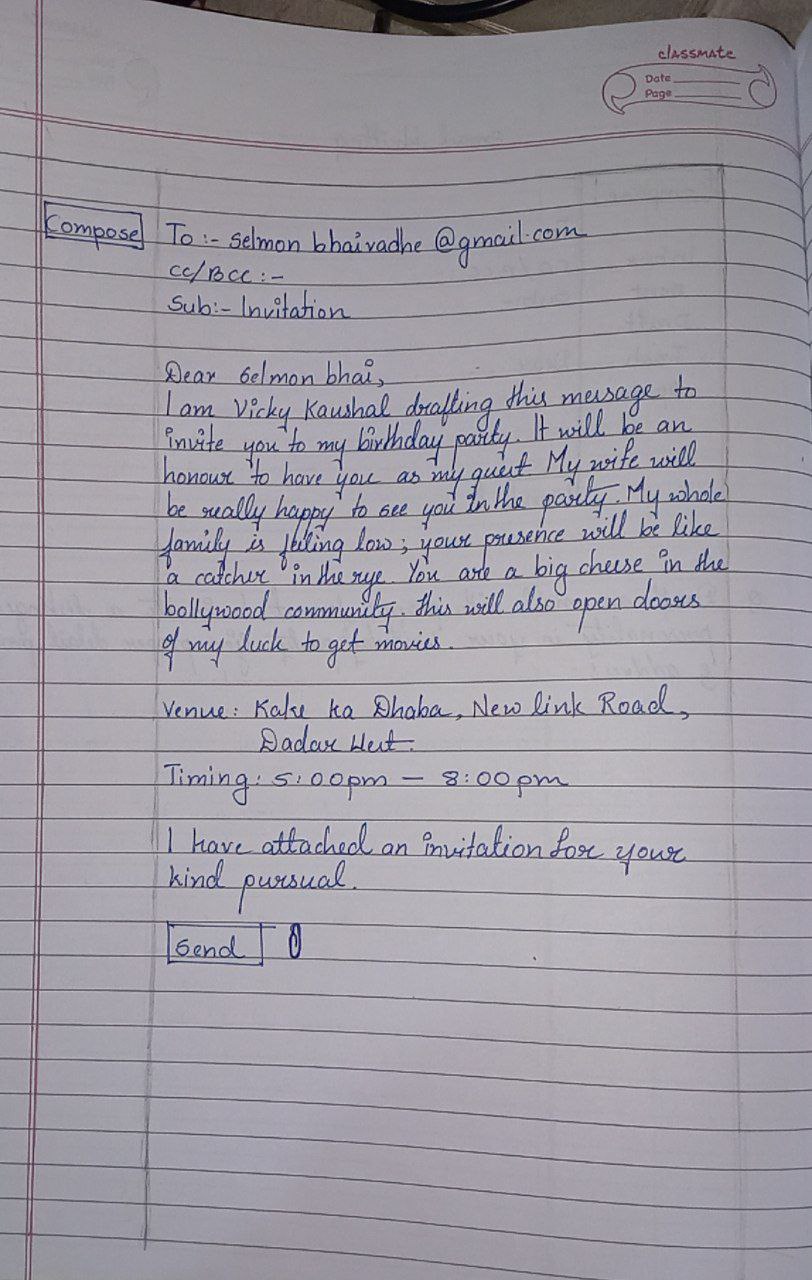 classmate
Date
Page
Compose To :- Selmon bhaivadhe @gmail.com
CC/BCC :-
Sub:- Invitation
Dear Selmon bhai,
I am Vicky Kaushal drafting this message to
invite you to my birthday party. It will be an
honour to have you as my guest My wife will
be really happy to see you in the party. My whole
family is feeling low; your presence will be like
a catcher in the rye. You are a big cheese in the
bollywood community. this will also open doors
of my luck to get movies.
Venue: Kake ka Dhaba, New link Road,
Dadar West.
Timing: 5:00pm – 8:00pm
I have attached an invitation for your
kind pursual.
Send